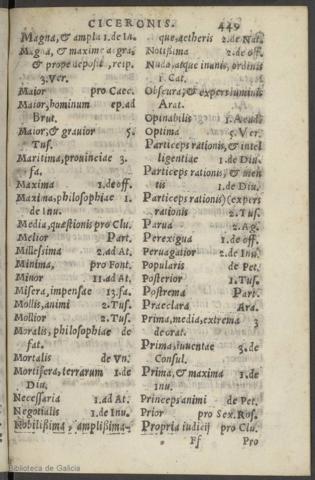 CICERONIS. 449
Magna, & ampla 1. de In.
Magna, & maxime a gra,
& prope deposit, resp.
3. Ver.
Maior pro Caec.
Maior, hominum ep. ad
Brut.
Maior, & grauior 5.
Tus.
Maritima, prouinciae 3.
fa.
Maxima 1. de off.
Maxima, philosophiae 1.
de Inu.
Media, quaestionis pro Clu.
Melior Part.
Millesima 2. ad At.
Minima, pro Font.
Minor 11. ad At.
Misera, impensae 13. fa.
Mollis, animi 2. Tus.
Mollior 2. Tus.
Moralis, philosophiae de
fat.
Mortalis de Vn.
Mortifera, terrarum 1. de
Diu.
Necessaria 1. ad At.
Negotialis 1. de Inu.
Nobilißima, amplißima-
que, aetheris 2. de Nat.
Notißima 2. de off.
Nuda, atque inanis, ordinis
1. Cat.
Obscura, & expers luminis
Arat.
Opinabilis 1. Acad.
Optima 5. Ver.
Particeps rationis, & intel
ligentiae 1. de Diu.
Particeps rationis, & men
tis 1. de Diu.
Particeps rationis) (expers
rationis 2. Tus.
Parua 2. Ag.
Perexigua 1. de off.
Peruagatior 2. de Inu.
Popularis de Pet.
Posterior 1. Tus.
Postrema Part.
Praeclara Ara.
Prima, media, extrema 3
de orat.
Prima, iuuentae 3. de
Consul.
Prima, & maxima 1. de
inu.
Princeps animi de Pet.
Prior pro Sex. Ros.
Propria iudicij pro Clu.
Ff Pro
Biblioteca de Galicia